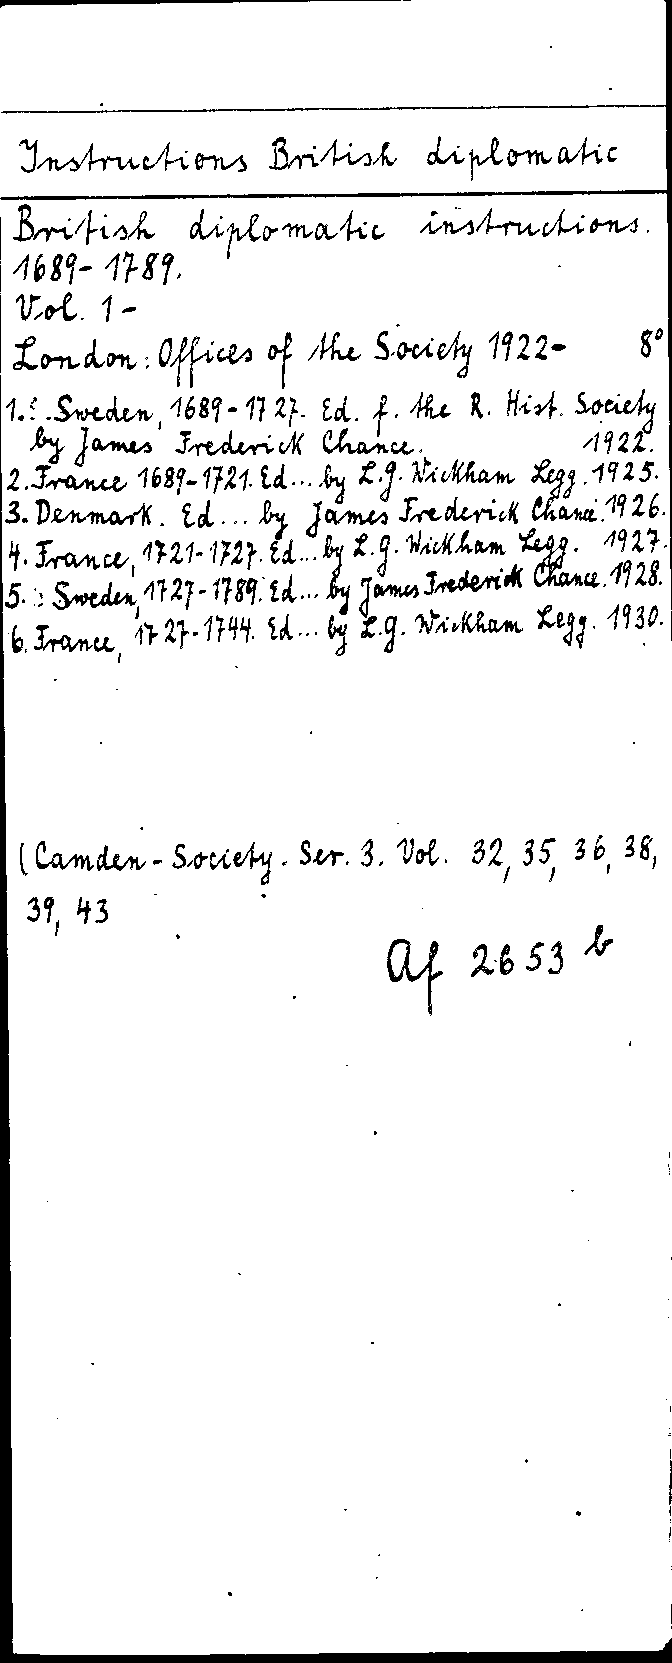 Instructions British diplomatic
British diplomatic instructions.
1689-1789.
Vol. 1-
London: Offices of the Society 1922- 8°
1.: Sweden, 1689-1727. Ed. f. the R. Hist. Society
by James Frederick Chance. 1922.
2. France 1689-1721. Ed... by L.G. Wickham Legg. 1925.
3. Denmark. Ed... by James Frederick Chance. 1926.
4. France, 1721-1727. Ed... by L.G. Wickham Legg. 1927.
5. : Sweden, 1727-1789. Ed... by James Frederick Chance. 1928.
6. France, 1727-1744. Ed... by L.G. Wickham Legg. 1930.
(Camden-Society. Ser. 3. Vol. 32, 35, 36, 38,
39, 43
Af 2653 b